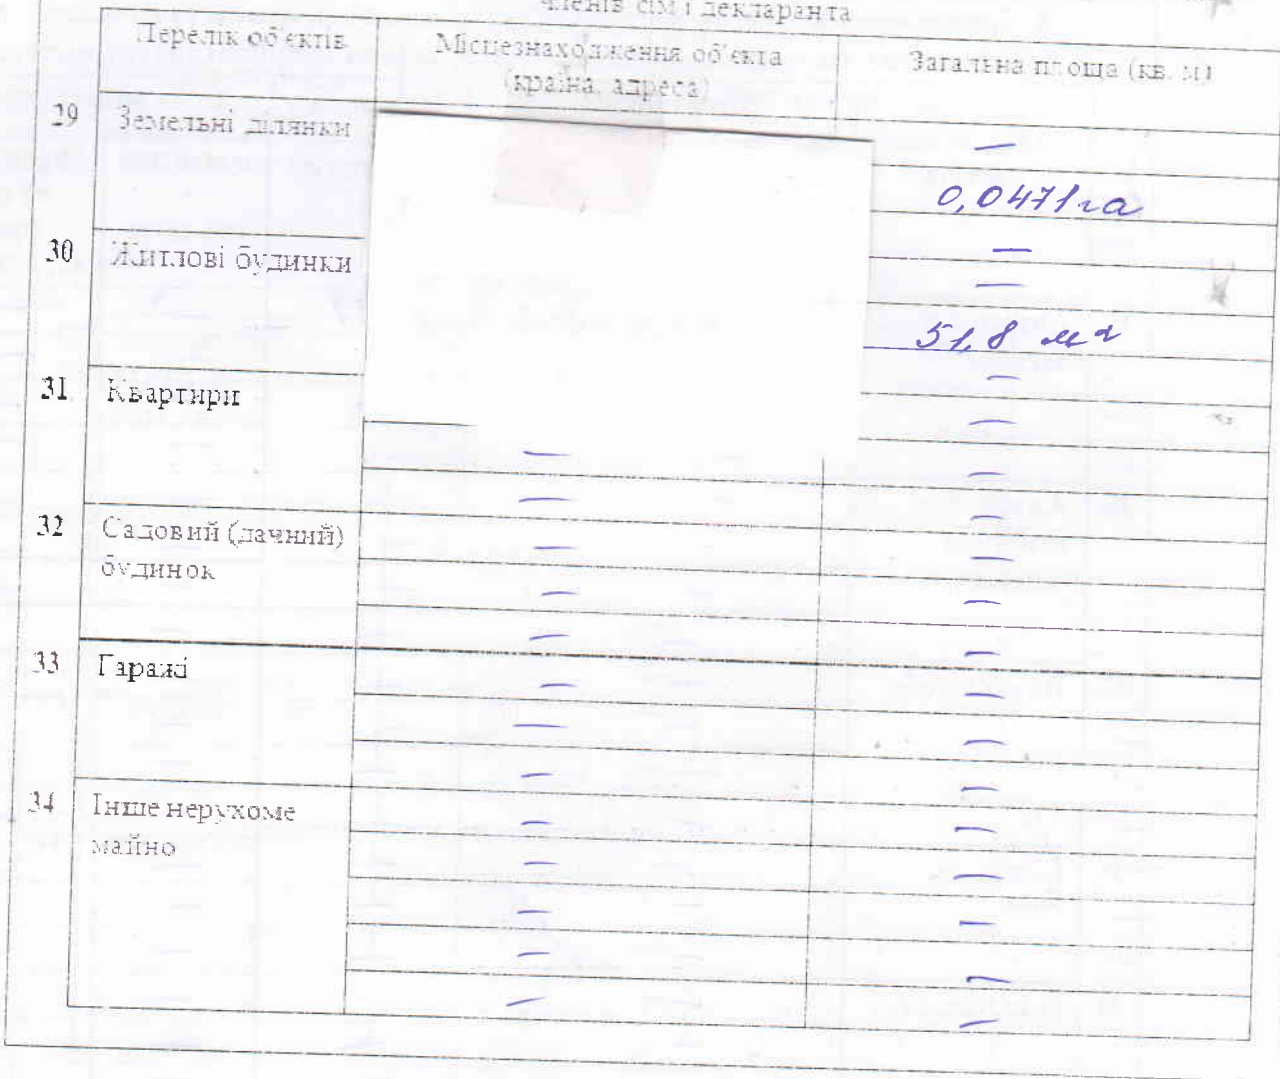 членів сім'ї декларанта
Перелік об'єктів
Місцезнаходження об'єкта
(країна, адреса)
Загальна площа (кв. м)
29 Земельні ділянки
—
0,0471 га
—
30 Житлові будинки
—
51,8 м²
—
31 Квартири
—
— —
— —
32 Садовий (дачний)
будинок
— —
— —
— —
33 Гаражі
— —
— —
— —
34 Інше нерухоме
майно
— —
— —
— —
— —
— —